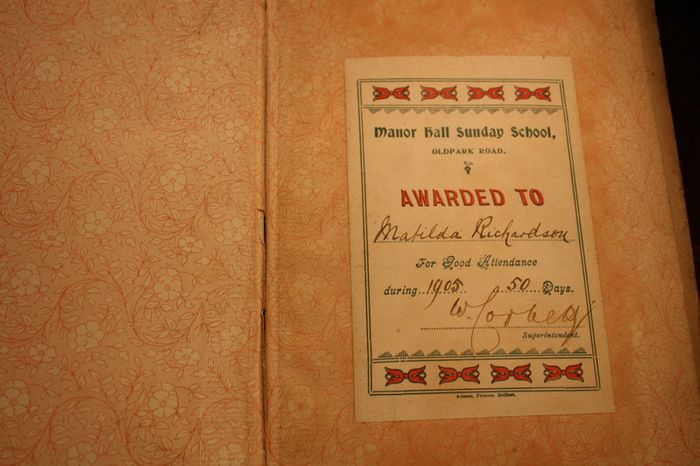 Manor Hall Sunday School,
OLDPARK ROAD.
AWARDED TO
Matilda Richardson
For Good Attendance
during 1905. 50 Days.
W. Corbett
Superintendent.
Adams, Printer, Belfast.